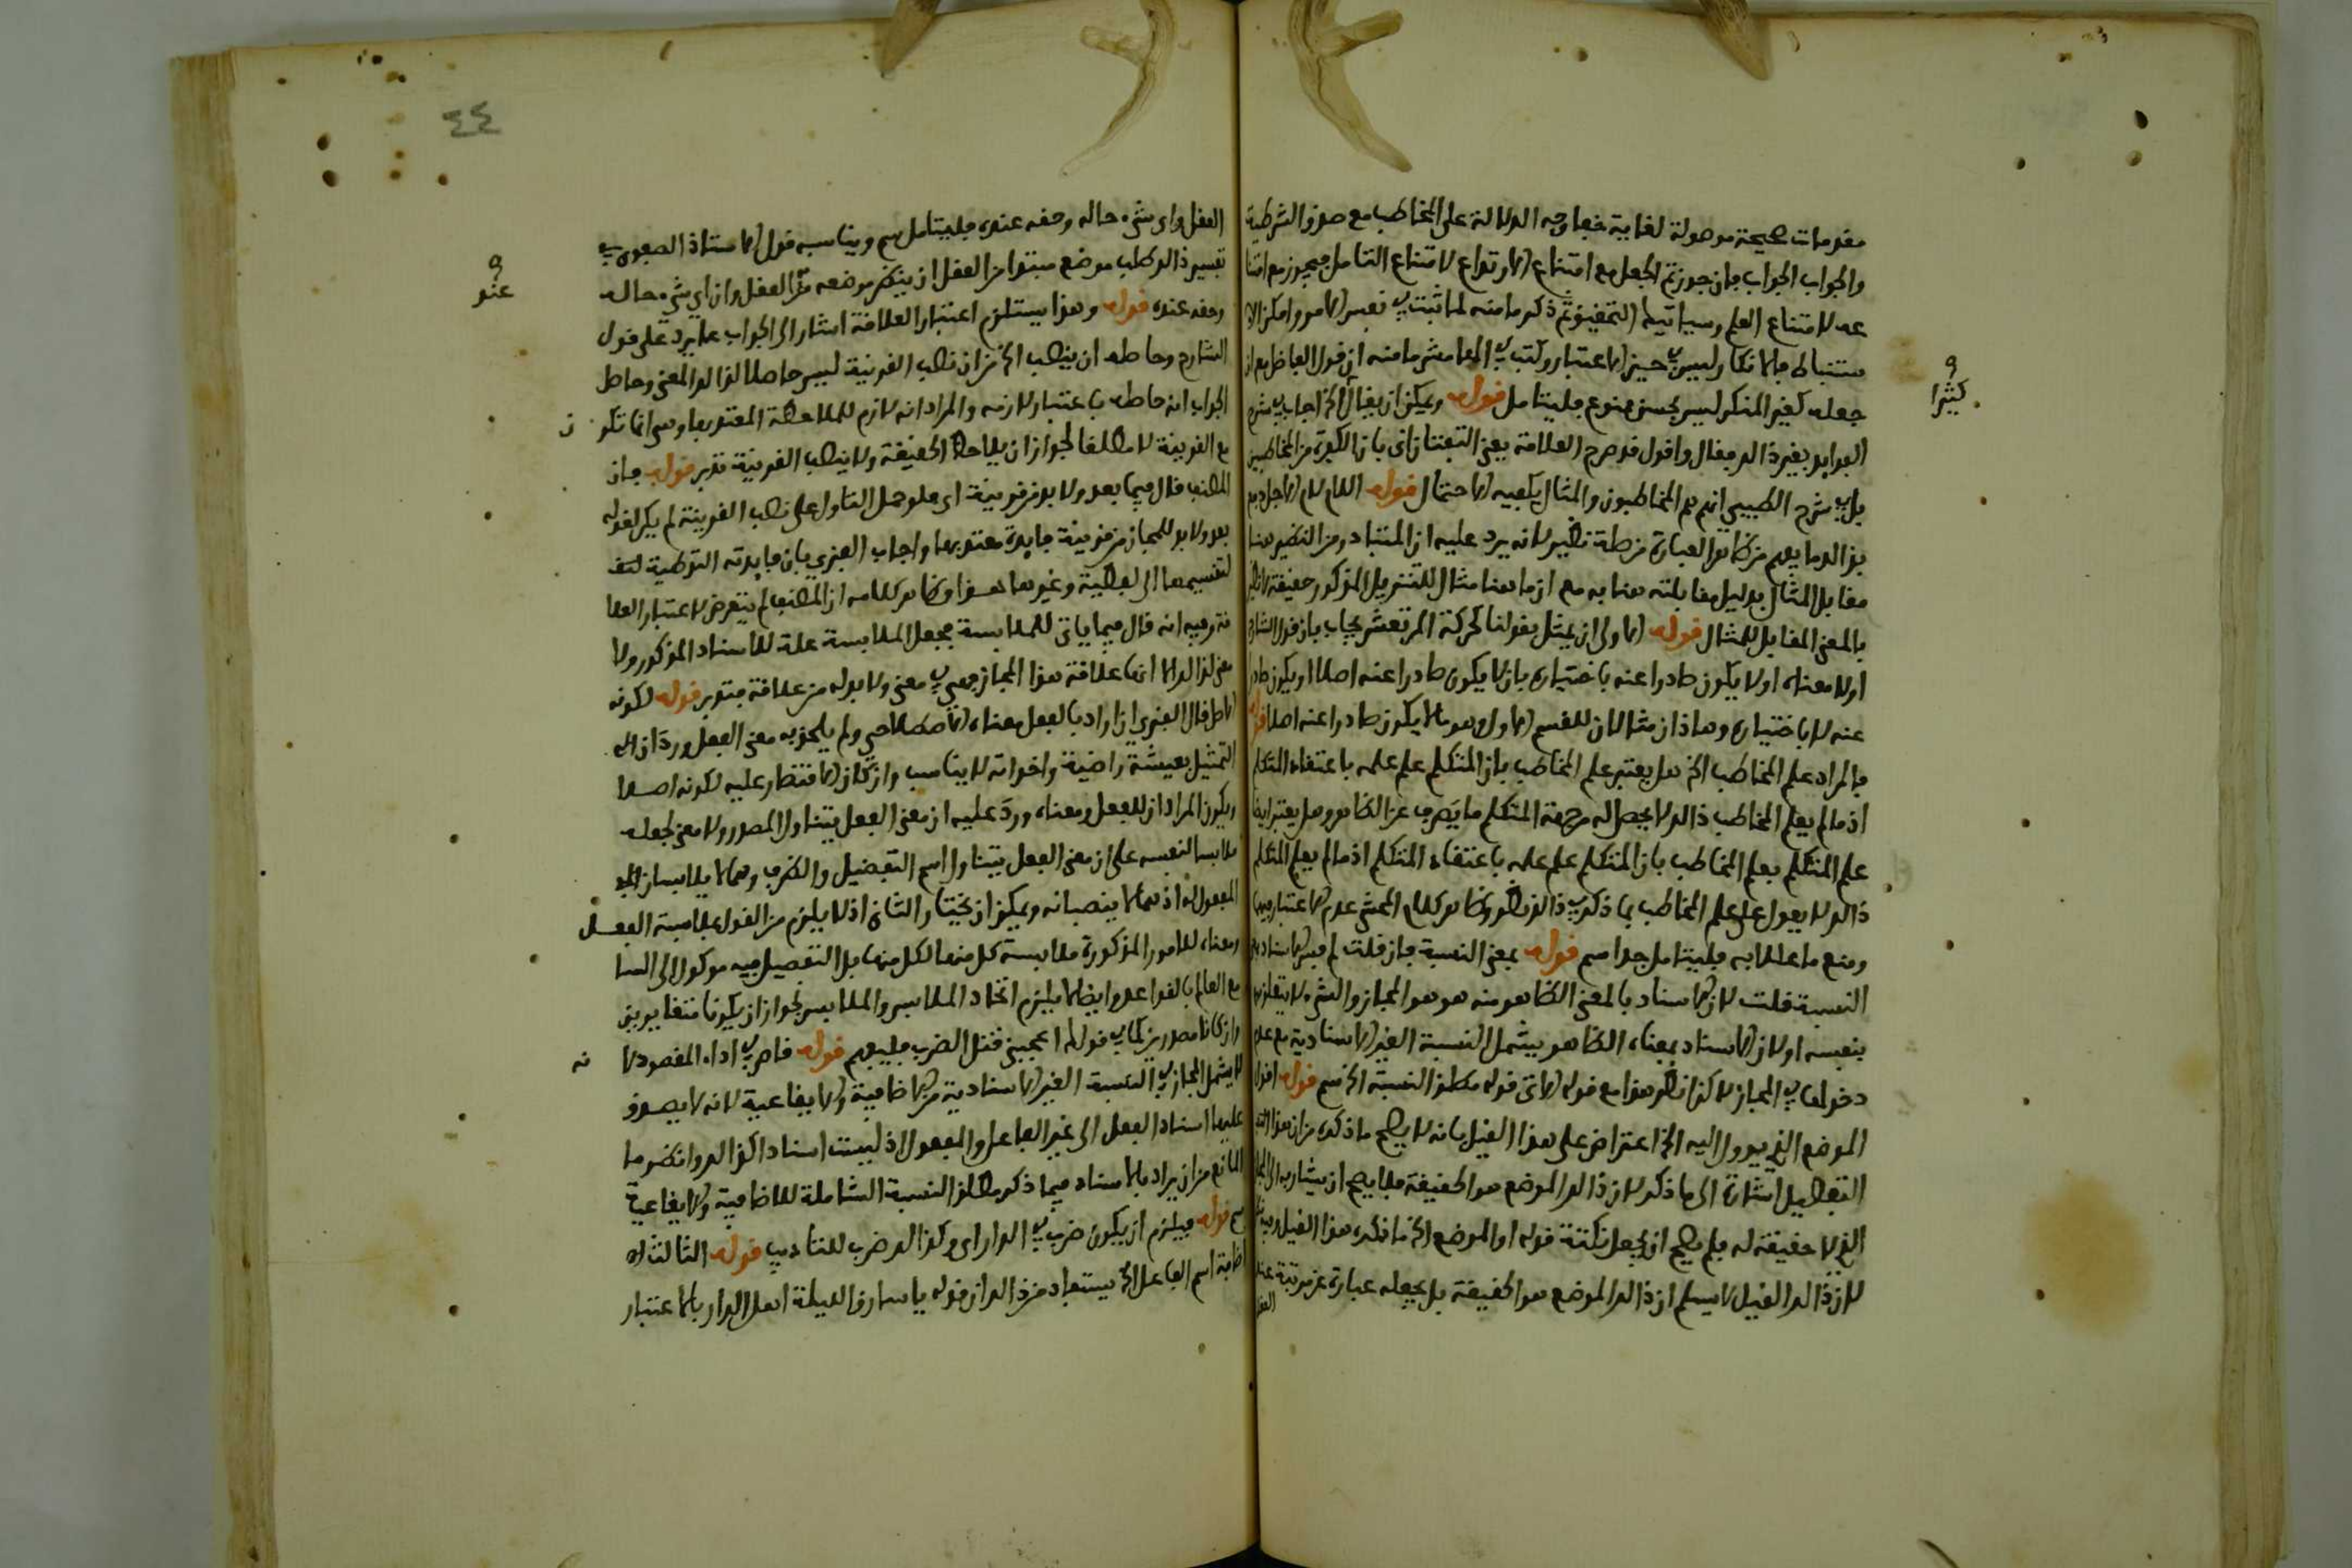 مقدمات صحيحة موصولة لغاية خفا وجه الدلالة على المخاطب مع صدق الشرطية
والجواب الجواب فان جوزتم الجعل مع امتناع الارتداع لامتناع التامل فيجوز مع
عه لامتناع العلم وسياتيك التحقيق ثم ذكر ما منه لما ثبت في نفس الامر وامكن الا
ستنباط فالانكار ليس في حيز الاعتبار وكتب في الهامش ما منه ان قول الفاضل
جعله كغير المنكر ليس بحسن ممنوع فليتامل قوله ويمكن ان يقال الخ اجاب في شرح
الفوايد بغير ذلك فقال واقول قد صرح العلامة يعني التفتازاني بان الكفرة من المخاطبين
بل في شرح الطيبي انهم هم المخاطبون والمثال يكفيه الاحتمال قوله اللام لام الاجل
بذلك ما يفهم من ظاهر العبارة من طة نظير لانه يرد عليه ان المتبادر من النظير هنا
مقابل المثال بدليل مقابلته هنا به مع ان ما هنا مثال للتنزيل المذكور حقيقة
بالمعنى المقابل للمثال قوله الاولى ان يمثل بقولنا لحركة المرتعش يجاب بان قول الشارح
اولا معناه اولا يكون صادرا عنه باختياره بان لا يكون صادرا عنه اصلا او يكون صادرا
عنه لا باختياره وهاذان مثالان للقسم الاول وهو ما لا يكون صادرا عنه اصلا قوله
فالمراد علم المخاطب الخ هل يعتبر علم المخاطب بان المتكلم علم علمه باعتقاد المتكلم
اذ ما لم يعلم المخاطب ذلك لا يحصل له من جهة المتكلم ما يصرف عن الظاهر وهل يعتبر ايضا
علم المتكلم بعلم المخاطب بان المتكلم علم علمه باعتقاد المتكلم اذ ما لم يعلم المتكلم
ذلك لا يعول على علم المخاطب بما ذكر في ذلك نظر وظاهر كلام المحشي عدم الاعتبار فيها
ومنع ما عللا به فليتامل جدا سم قوله بمعنى النسبة فان قلت لم
النسبة قلت لان الاسناد بالمعنى الظاهر منه هو هو المجاز والشيء لا
بنفسه اولان الاسناد بمعناه الظاهر يشمل النسبة الغير الاسنادية مع عدم
دخولها في المجاز لاكن انظر هذا مع قوله الاتي قوله مطلق النسبة الخ سم قوله اقول
الموضع الذي يوول اليه الخ اعتراض على هذا القيل بانه لا يصح ما ذكره من ان هذا
التفصيل اشارة الى ما ذكر لان ذلك الموضع هو الحقيقة فلا يصح ان يشار به الى
الذي لا حقيقة له فلم يصح ان يجعل نكتة قوله او الموضع الخ ما ذكره هذا القيل
لان ذلك القيل لا يسلم ان ذلك الموضع هو الحقيقة بل يجعله عبارة عن مرتبة عند
العقل
كثيرا
٤٤
العقل واي شيء حاله وحقه عنده فليتامل سم ويناسبه قول الاستاذ الصفوي في
تفسير ذلك وطلب موضع مبتدا من العقل ان ينظر موضعه من العقل وان اي شيء حاله
وحقه عنده قوله وهذا يستلزم اعتبار العلاقة اشار الى الجواب عما يرد على قول
الشارح وحاصله ان ينصب الخ من ان نصب القرينة ليس حاصلا لذلك المعنى وحاصل
الجواب انه حاصله باعتبار لازمه والمراد انه لازم للملاحظة المعتد بها وهي انما تكو ن
مع القرينة لا مطلقا لجواز ان يلاحظ الحقيقة ولا ينصب القرينة تدبر قوله فان
المصنف قال فيما بعد ولا بد من قرينة اي فلو حمل التاول على نصب القرينة لم يكن لقوله
بعد ولا بد للمجاز من قرينة فايدة معتد بها واجاب الفنري بان فايدته التوطية
لتقسيمها الى لفظية وغيرها هذا وظاهر كلامه ان المصنف لم يتعرض لاعتبار العلا
قة وفيه انه قال فيما ياتي للملابسة فجعل الملابسة علة للاسناد المذكور ولا
معنى لذلك الا انها علاقة هذا المجاز فهي في معنى ولا بد له من علاقة فتدبر قوله لكونه
الاصل قال الفنري ان اراد بالفعل معناه الاصطلاحي ولم يلحق به معنى الفعل ورد ان
التمثيل بعيشة راضية واخواته لا يناسب وان كان الاقتصار عليه لكونه اصلا
ويكون المراد ان للفعل ومعناه ورد عليه ان معنى الفعل يتناول المصدر ولا معنى لجعله
ملابسا لنفسه على ان معنى الفعل يتناول اسم التفضيل والظرف وهما لا يلابسان
المفعول به اذ هما لا ينصبانه ويمكن ان يختار الثاني اذ لا يلزم من القول بملابسة الفعل
ومعناه للامور المذكورة ملابسة كل منها لكل منها بل التفصيل فيه موكول الى السا
مع العالم بالقواعد وايضا لا يلزم اتحاد الملابس والملابس لجواز ان يكونا متغايرين
وان كانا مصدرين كما في قولك اعجبني قتل الضرب فليفهم قوله قاصر في اداء المقصود لا نه
لا يشمل المجاز في النسبة الغير الاسنادية من الاضافية والايقاعية لانه لا يصدق
عليها اسناد الفعل الى غير الفاعل والمفعول اذ ليست اسنادا كذلك وانظر ما
المانع من ان يراد بالاسناد فيما ذكر مطلق النسبة الشاملة للاضافية والايقاعية
سم قوله فيلزم ان يكون ضرب في الدار اي وكذلك ضرب للتاديب قوله الثالث ان
اضافة اسم الفاعل الخ يستفاد من ذلك ان قوله يا سارق الليلة اهل الدار بالاعتبار
عند